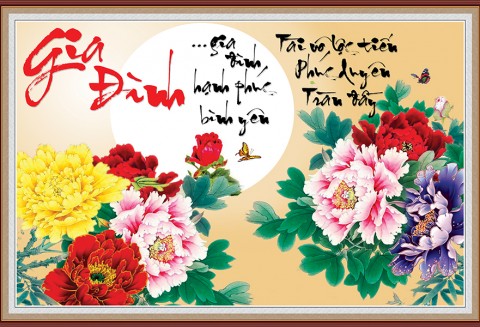 Gia
Đình
...gia
đình
hạnh phúc
bình yên
Tài vô lộc tiến
Phúc duyên
Tràn đầy